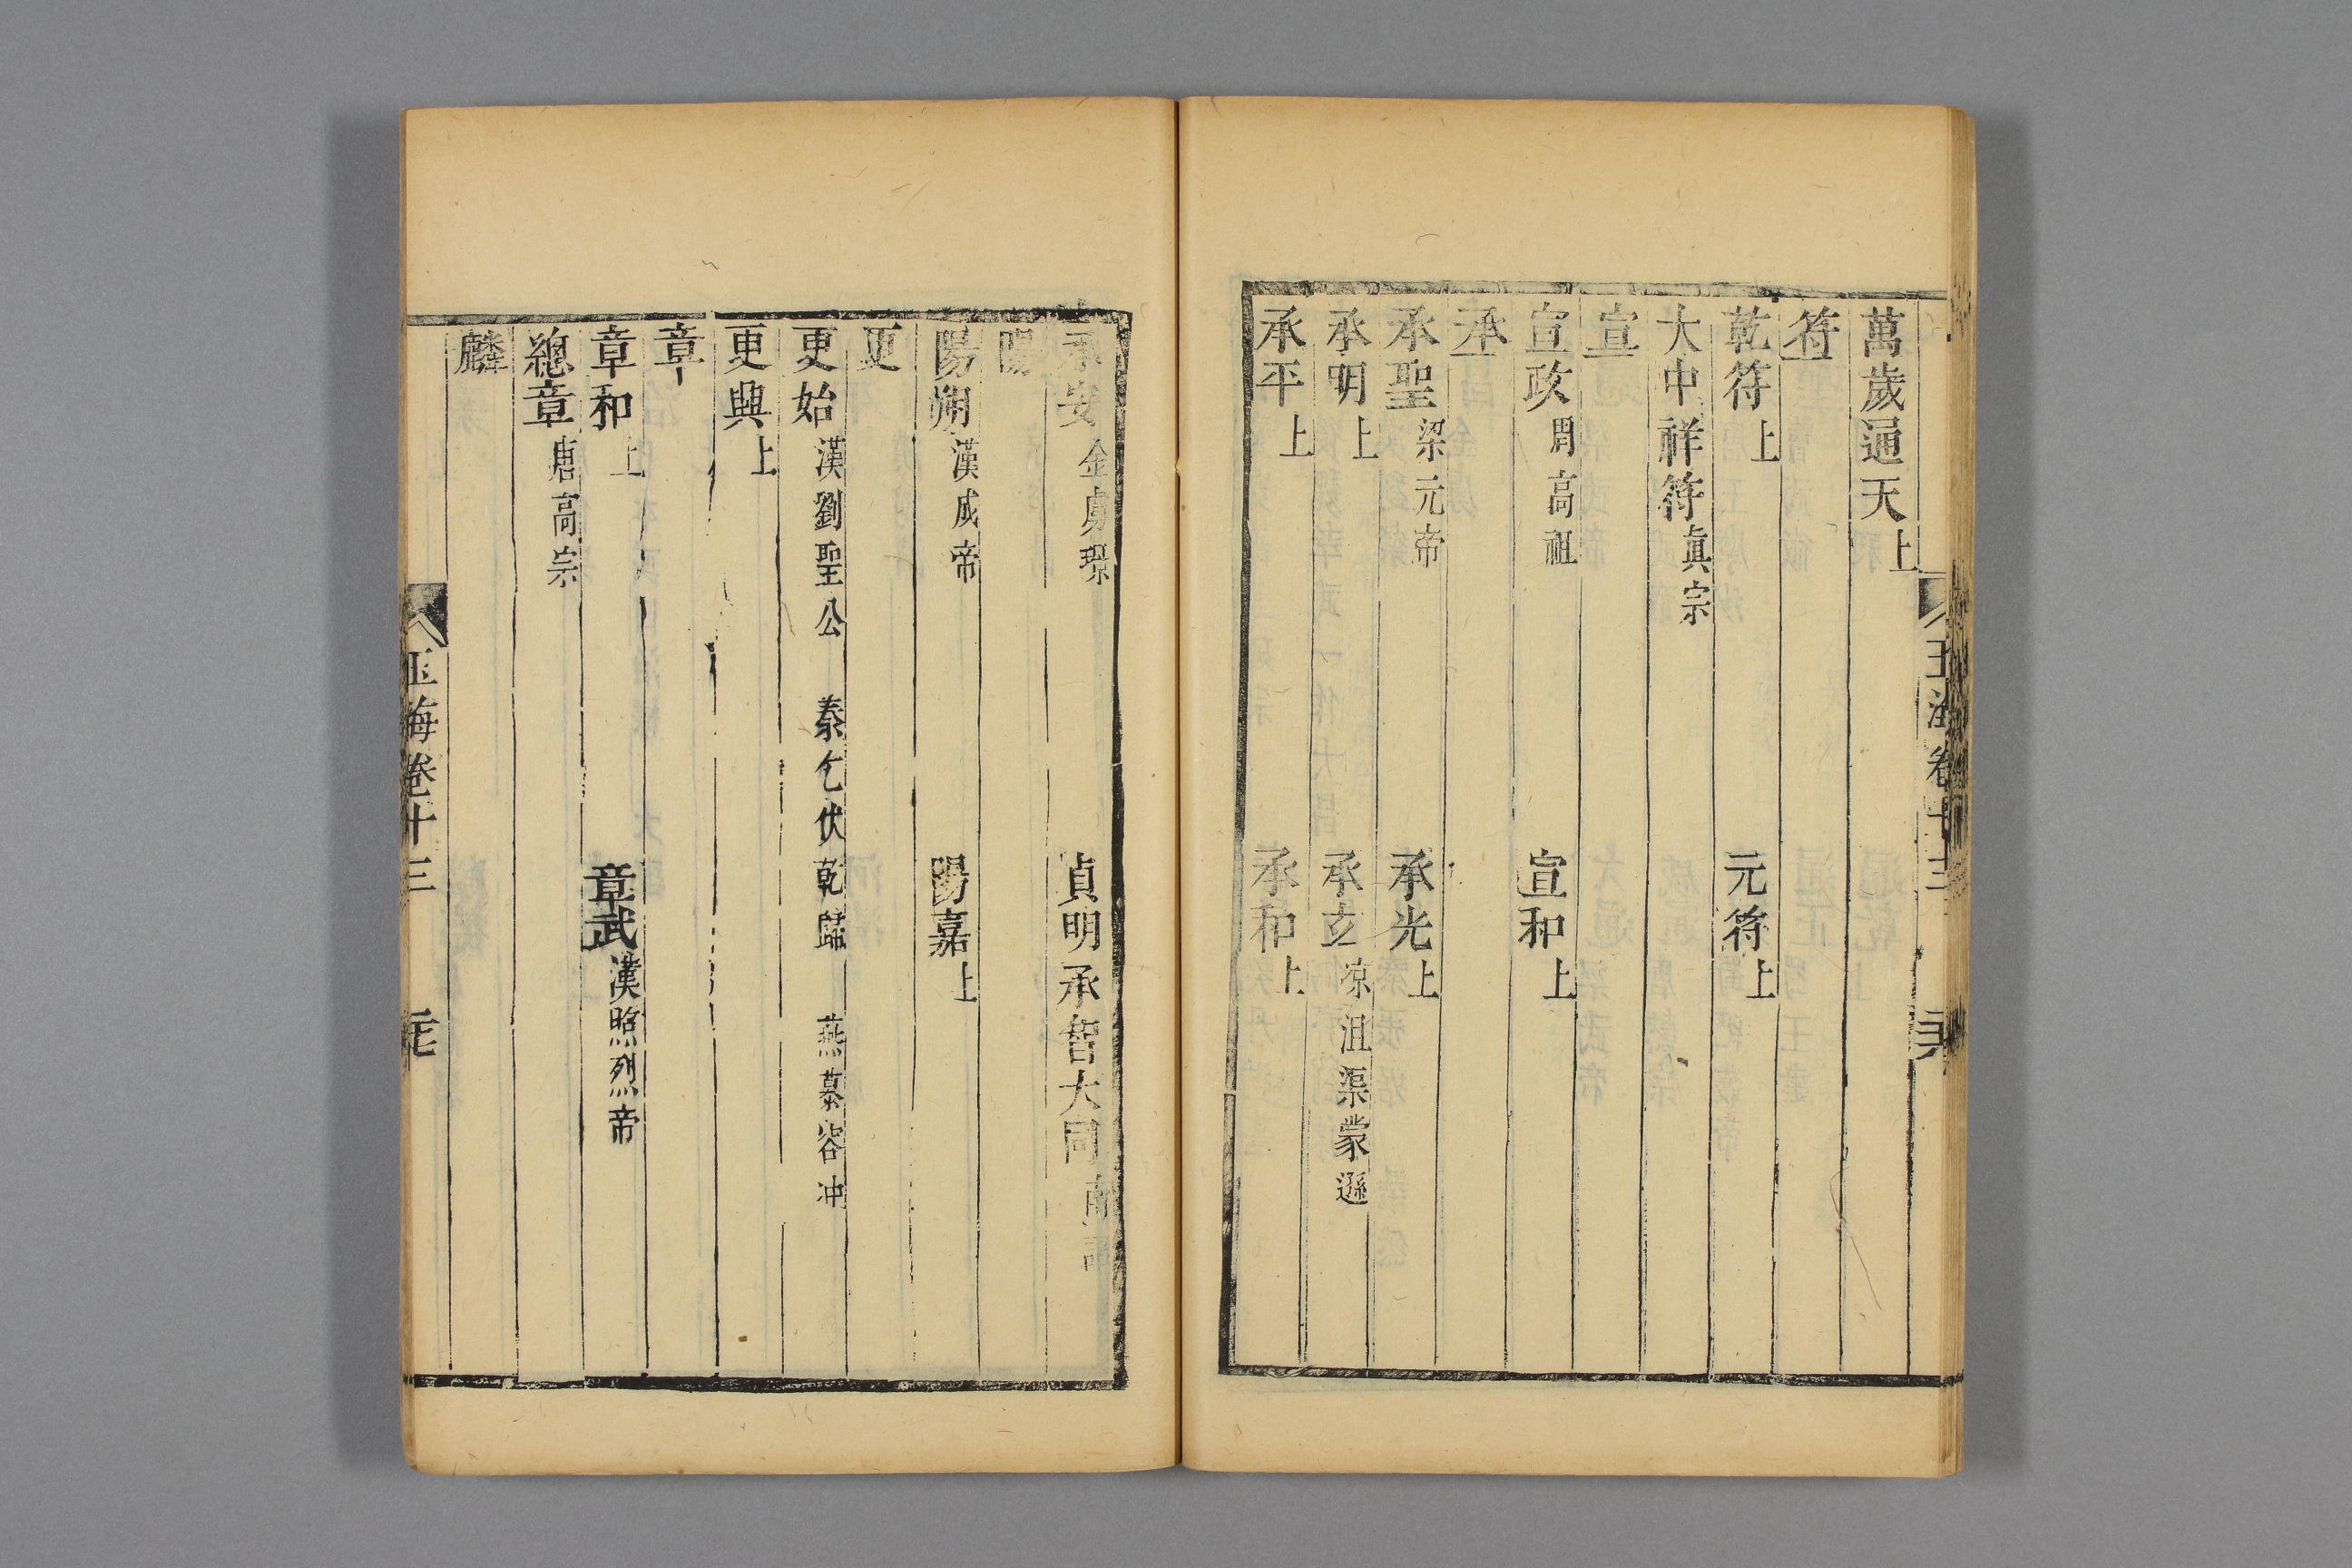 萬歲通天上
符
乾符上 元符上
大中祥符眞宗
宣
宣政周高祖 宣和上
承
承聖梁元帝 承光上
承明上 承玄涼沮渠蒙遜
承平上 承和上
承安金虜璟 貞明承智大同南詔
陽
陽朔漢成帝 陽嘉上
更
更始漢劉聖公 秦乞伏乾歸 燕慕容冲
更興上
章
章和上 章武漢昭烈帝
總章唐高宗
麟
玉海卷十三